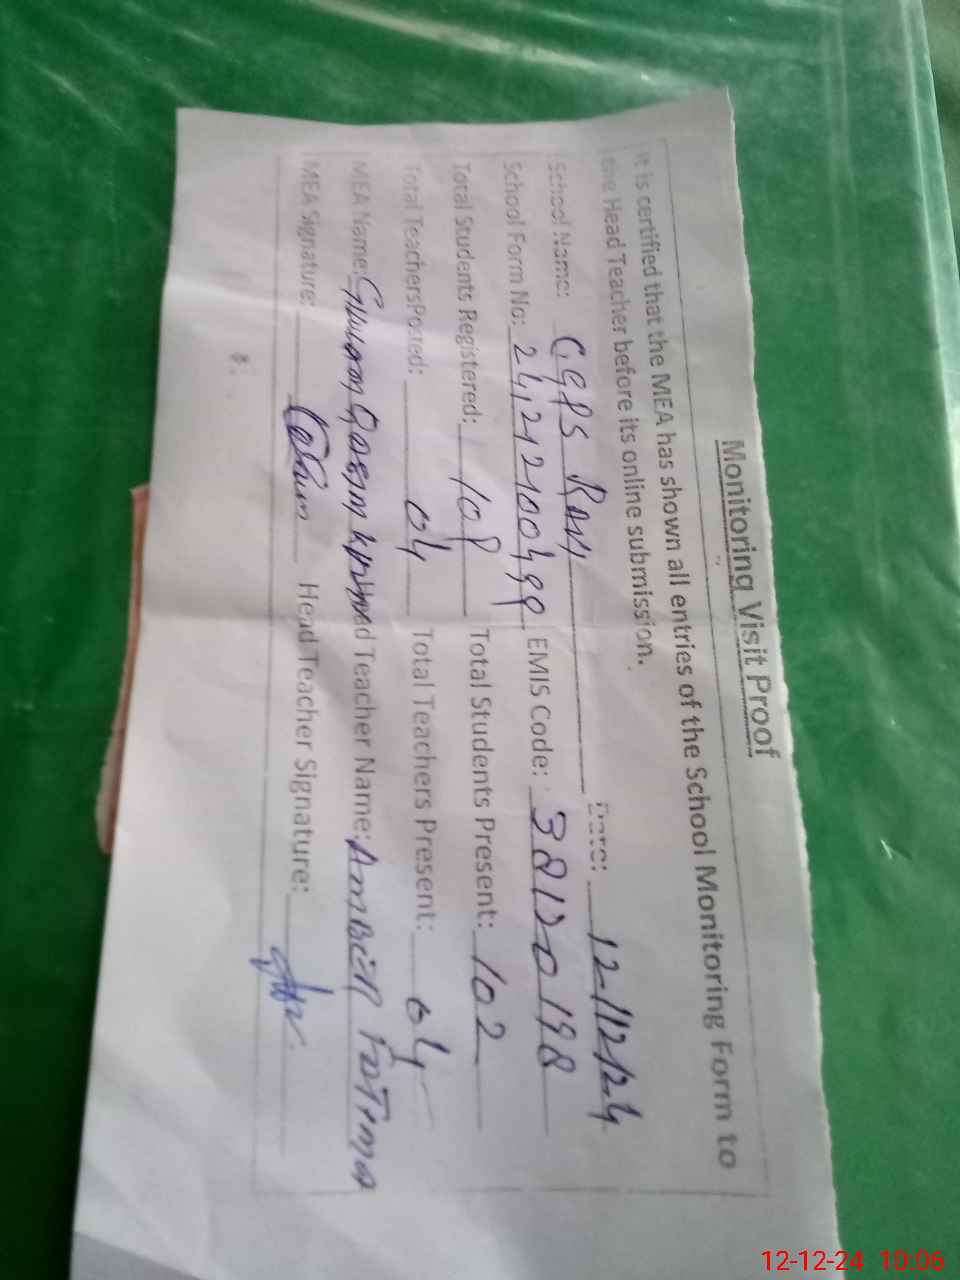 Monitoring Visit Proof
It is certified that the MEA has shown all entries of the School Monitoring Form to
the Head Teacher before its online submission.
Date: 12-12-24
School Name: GGPS
School Form No: EMIS Code: 38120198
Total Students Registered: 108 Total Students Present: 102
Total TeachersPosted: 04 Total Teachers Present: 04
MEA Name: Qasim Head Teacher Name: Ambeen Fatima
MEA Signature: Head Teacher Signature:
12-12-24 10:06